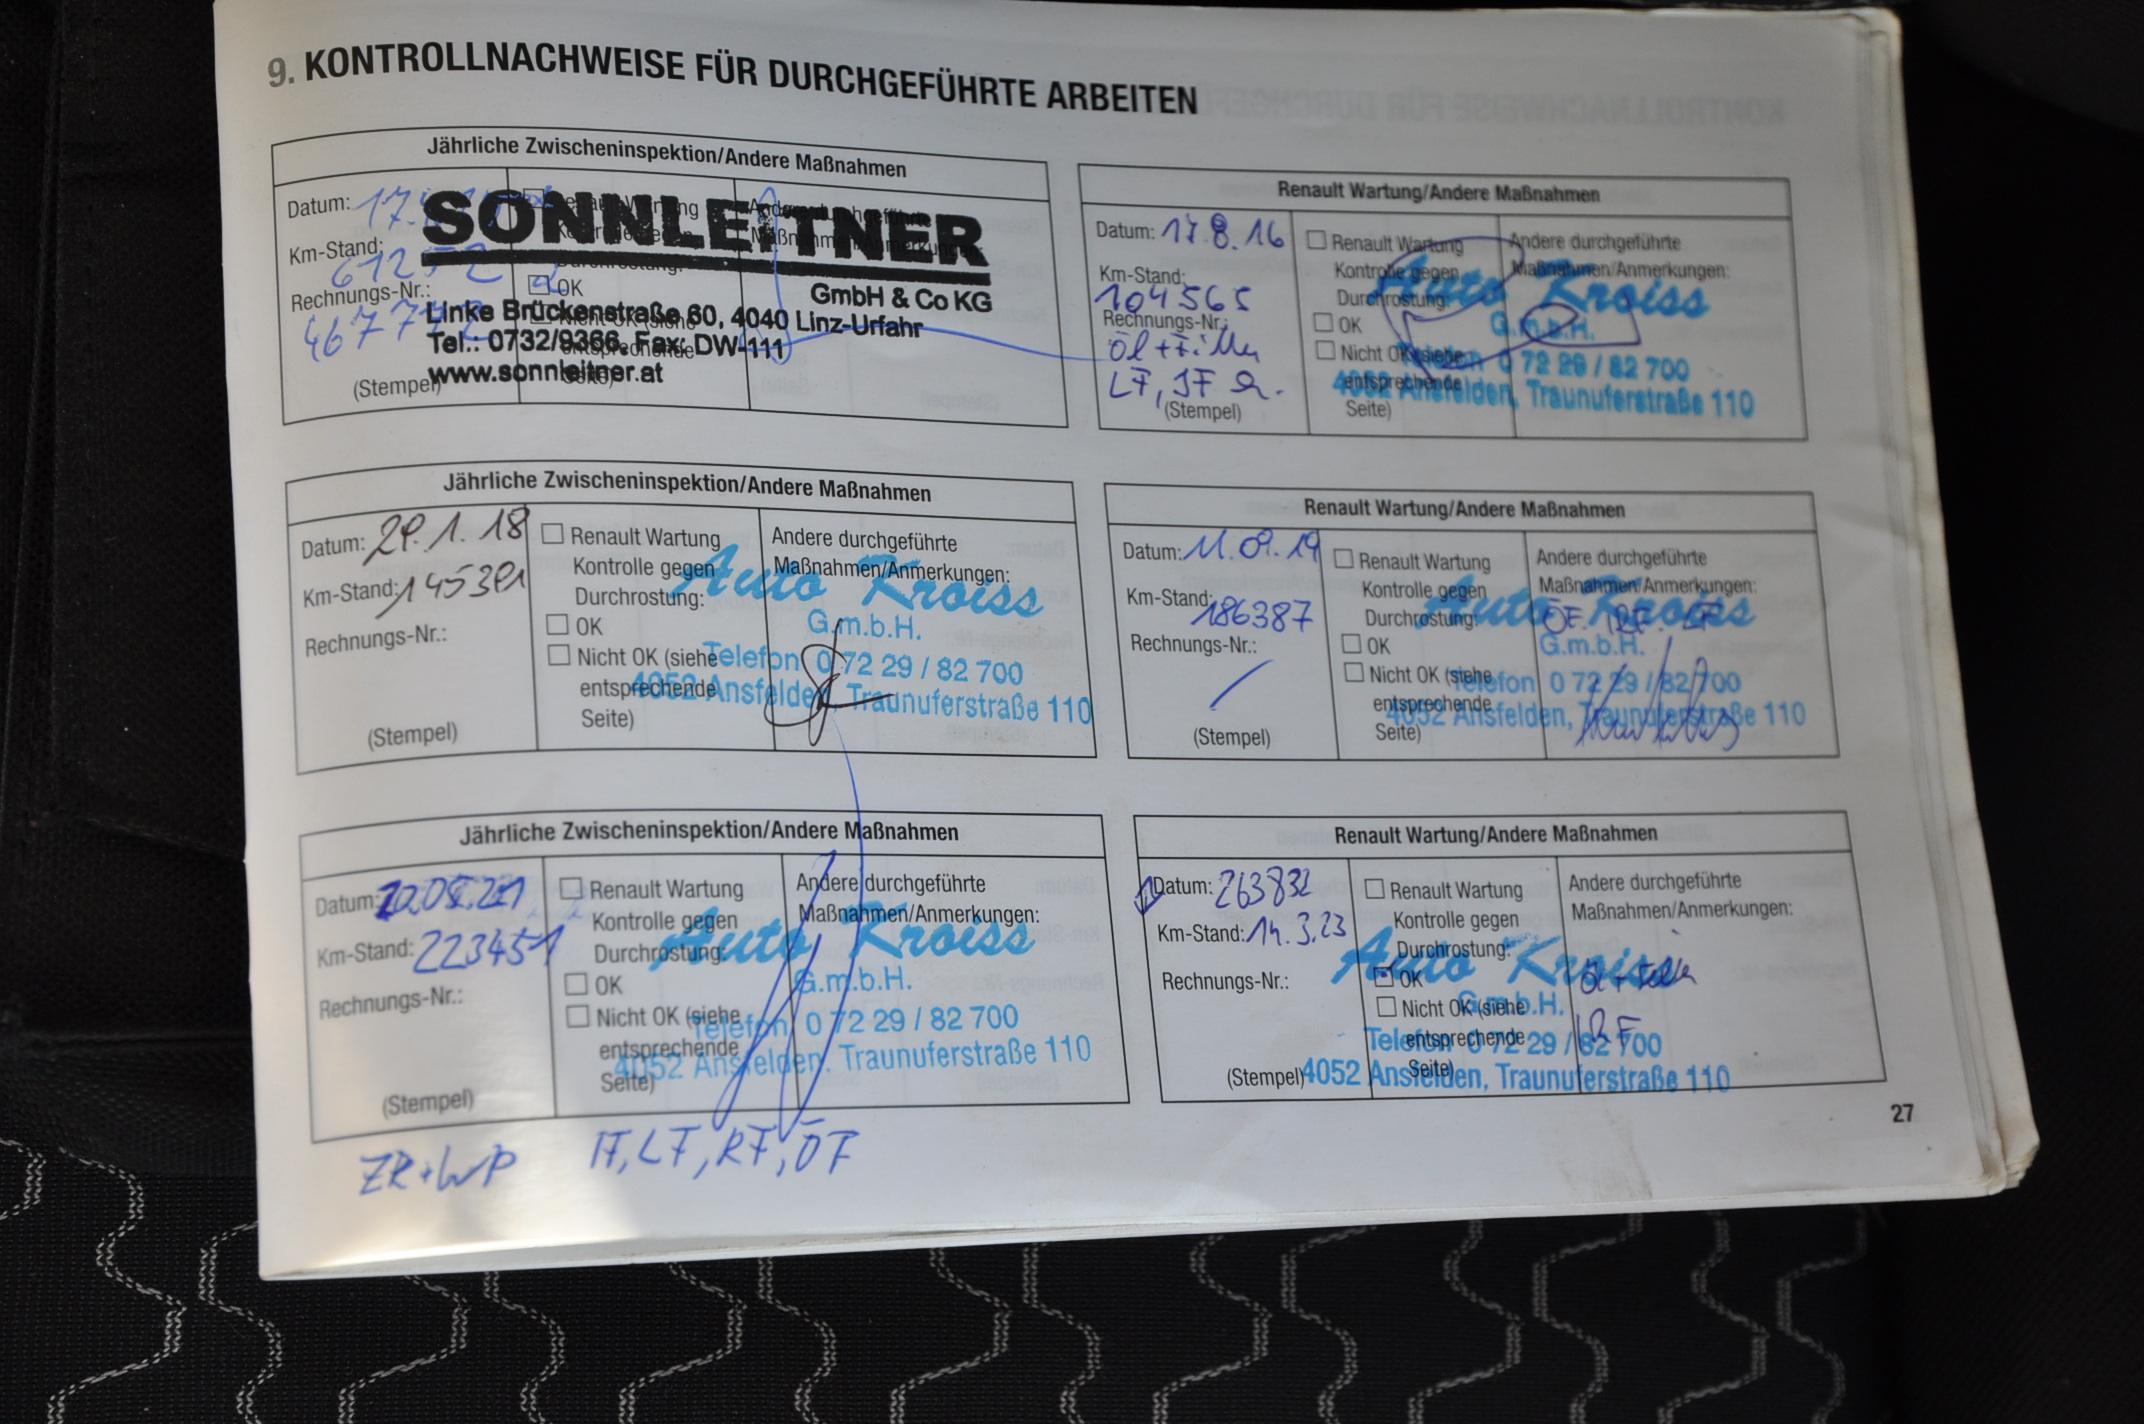 9. KONTROLLNACHWEISE FÜR DURCHGEFÜHRTE ARBEITEN
Jährliche Zwischeninspektion/Andere Maßnahmen
Datum: 17.
Km-Stand:
61252
Rechnungs-Nr.:
467772
(Stempel)
OK
SONNLEITNER
GmbH & Co KG
Linke Brückenstraße 60, 4040 Linz-Urfahr
Tel.: 0732/9366, Fax: DW-111
www.sonnleitner.at
Renault Wartung/Andere Maßnahmen
Datum: 17.8.16
Km-Stand:
104565
Rechnungs-Nr.:
Öl + Filter
LF, IF
(Stempel)
Renault Wartung
Kontrolle gegen
Durchrostung:
OK
Nicht OK (siehe
entsprechende
Seite)
Andere durchgeführte
Maßnahmen/Anmerkungen:
Auto Kroiss
G.m.b.H.
Telefon 0 72 29 / 82 700
4052 Ansfelden, Traunuferstraße 110
Jährliche Zwischeninspektion/Andere Maßnahmen
Datum: 29.1.18
Km-Stand: 145391
Rechnungs-Nr.:
(Stempel)
Renault Wartung
Kontrolle gegen
Durchrostung:
OK
Nicht OK (siehe
entsprechende
Seite)
Andere durchgeführte
Maßnahmen/Anmerkungen:
Auto Kroiss
G.m.b.H.
Telefon 0 72 29 / 82 700
4052 Ansfelden, Traunuferstraße 110
Renault Wartung/Andere Maßnahmen
Datum: 11.09.19
Km-Stand:
186387
Rechnungs-Nr.:
(Stempel)
Renault Wartung
Kontrolle gegen
Durchrostung:
OK
Nicht OK (siehe
entsprechende
Seite)
Andere durchgeführte
Maßnahmen/Anmerkungen:
ÖF. RF. LF
Auto Kroiss
G.m.b.H.
Telefon 0 72 29 / 82 700
4052 Ansfelden, Traunuferstraße 110
Jährliche Zwischeninspektion/Andere Maßnahmen
Datum:
Km-Stand: 223451
Rechnungs-Nr.:
(Stempel)
Renault Wartung
Kontrolle gegen
Durchrostung:
OK
Nicht OK (siehe
entsprechende
Seite)
Andere durchgeführte
Maßnahmen/Anmerkungen:
Auto Kroiss
G.m.b.H.
Telefon 0 72 29 / 82 700
4052 Ansfelden, Traunuferstraße 110
ZR+WP IF, LF, RF, ÖF
Renault Wartung/Andere Maßnahmen
Datum: 263832
Km-Stand: 14.3.23
Rechnungs-Nr.:
(Stempel)
Renault Wartung
Kontrolle gegen
Durchrostung:
OK
Nicht OK (siehe
entsprechende
Seite)
Andere durchgeführte
Maßnahmen/Anmerkungen:
Auto Kroiss
G.m.b.H.
Telefon 0 72 29 / 82 700
4052 Ansfelden, Traunuferstraße 110
27